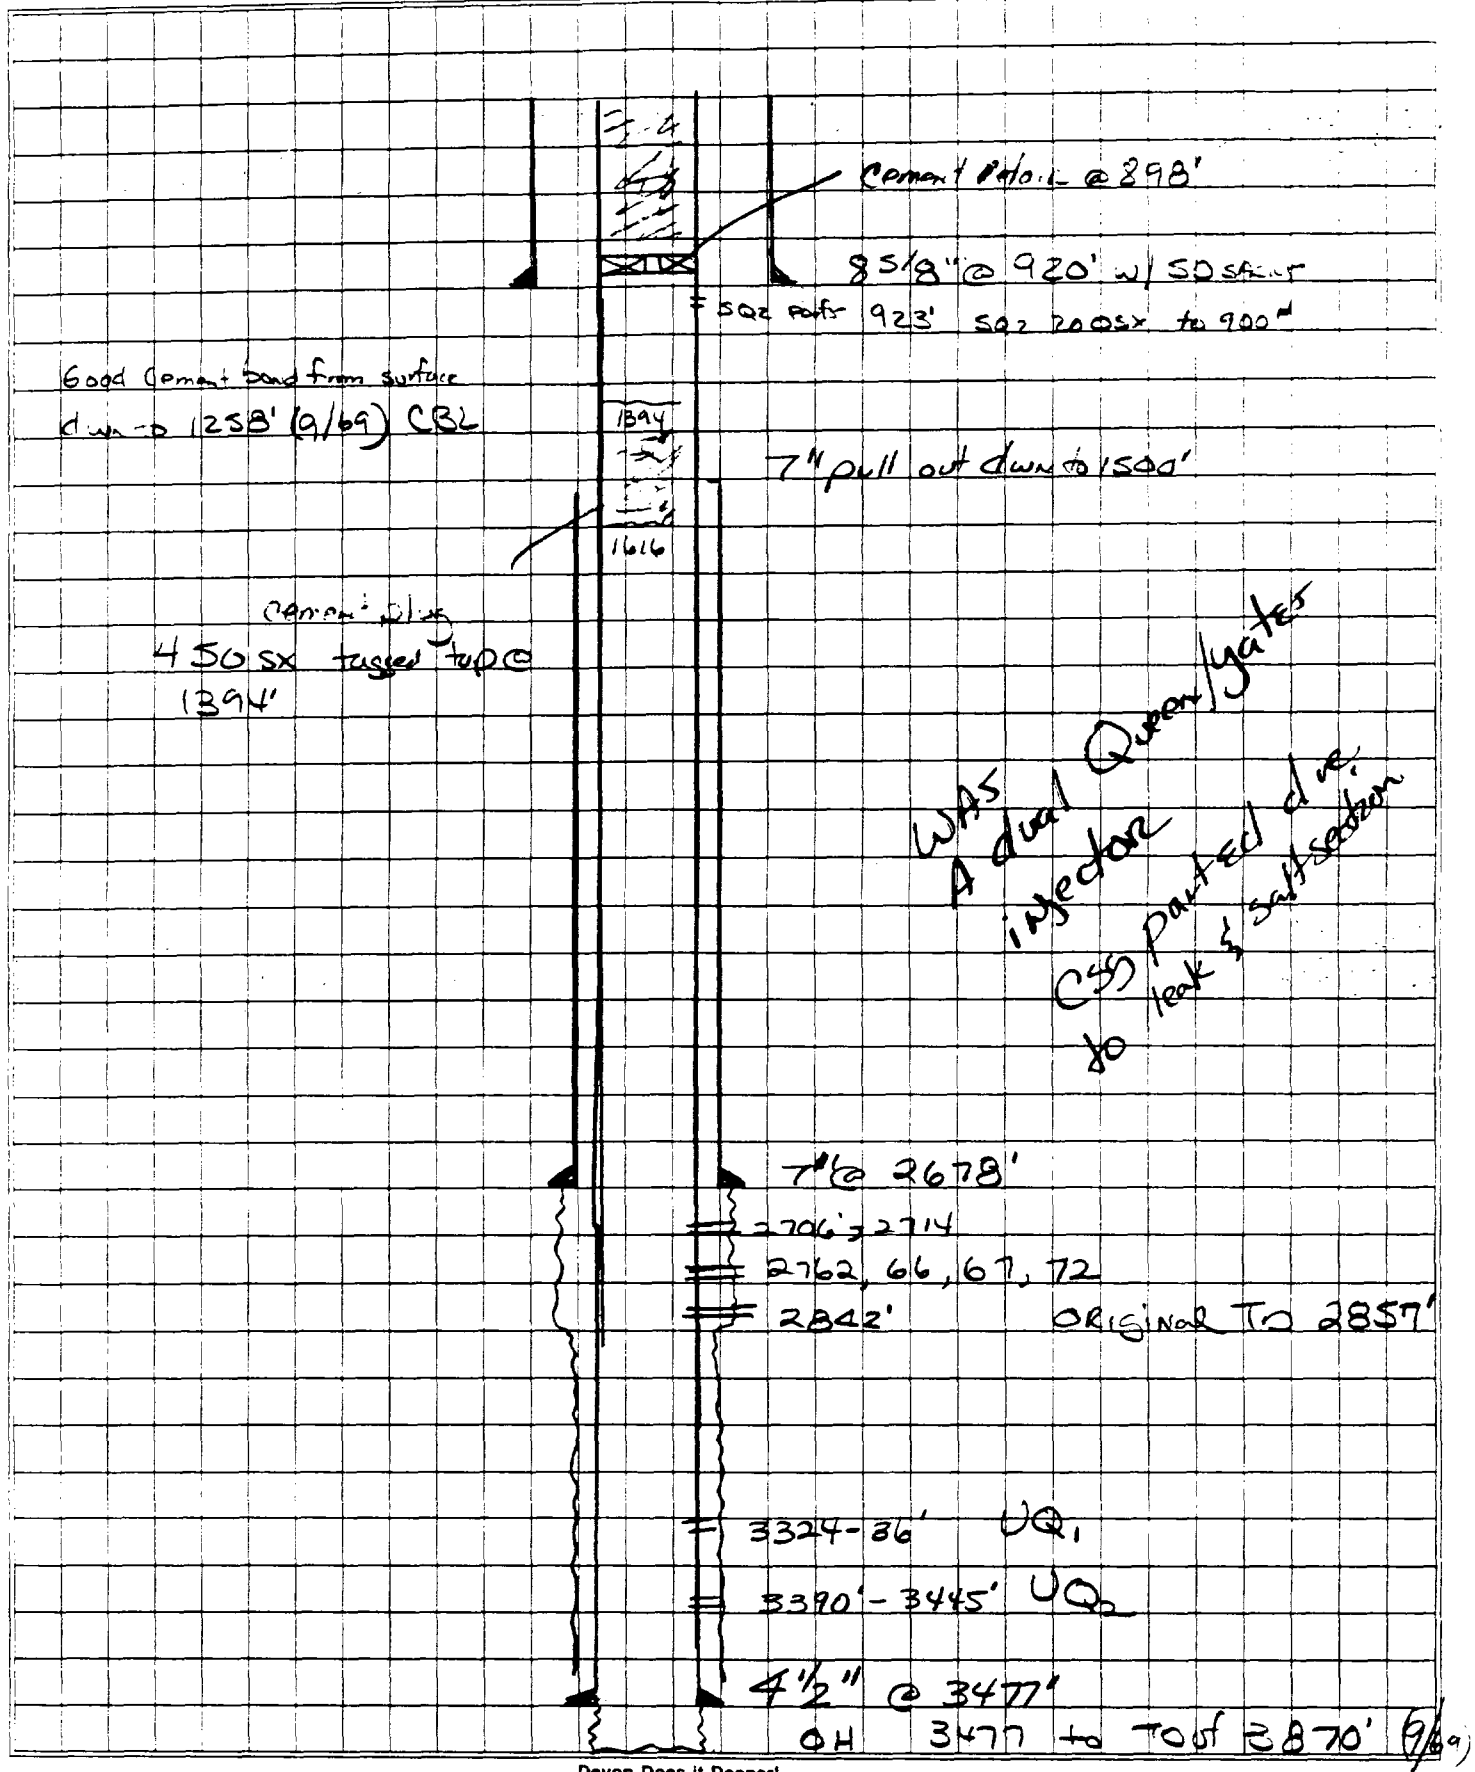 Cement Retain @ 898'
8 5/8" @ 920' w/ 50 sacks
SQZ perfs 923' SQZ 200sx to 900#
Good Cement bond from surface
dwn to 1258' (9/69) CBL
1394
7" pull out dwn to 1500'
1616
cement plug
450 sx tagged top @
1394'
WAS
A dual Queen/yates
injector
CSG parted due
to leak & salt section
7" @ 2678'
2706', 2714
2762, 66, 67, 72
2842' ORIGINAL TD 2857'
3324-36' UQ1
3390'-3445' UQ2
4 1/2" @ 3477'
OH 3477 to TD of 3870' (9/69)
Devon Does it Deeper!